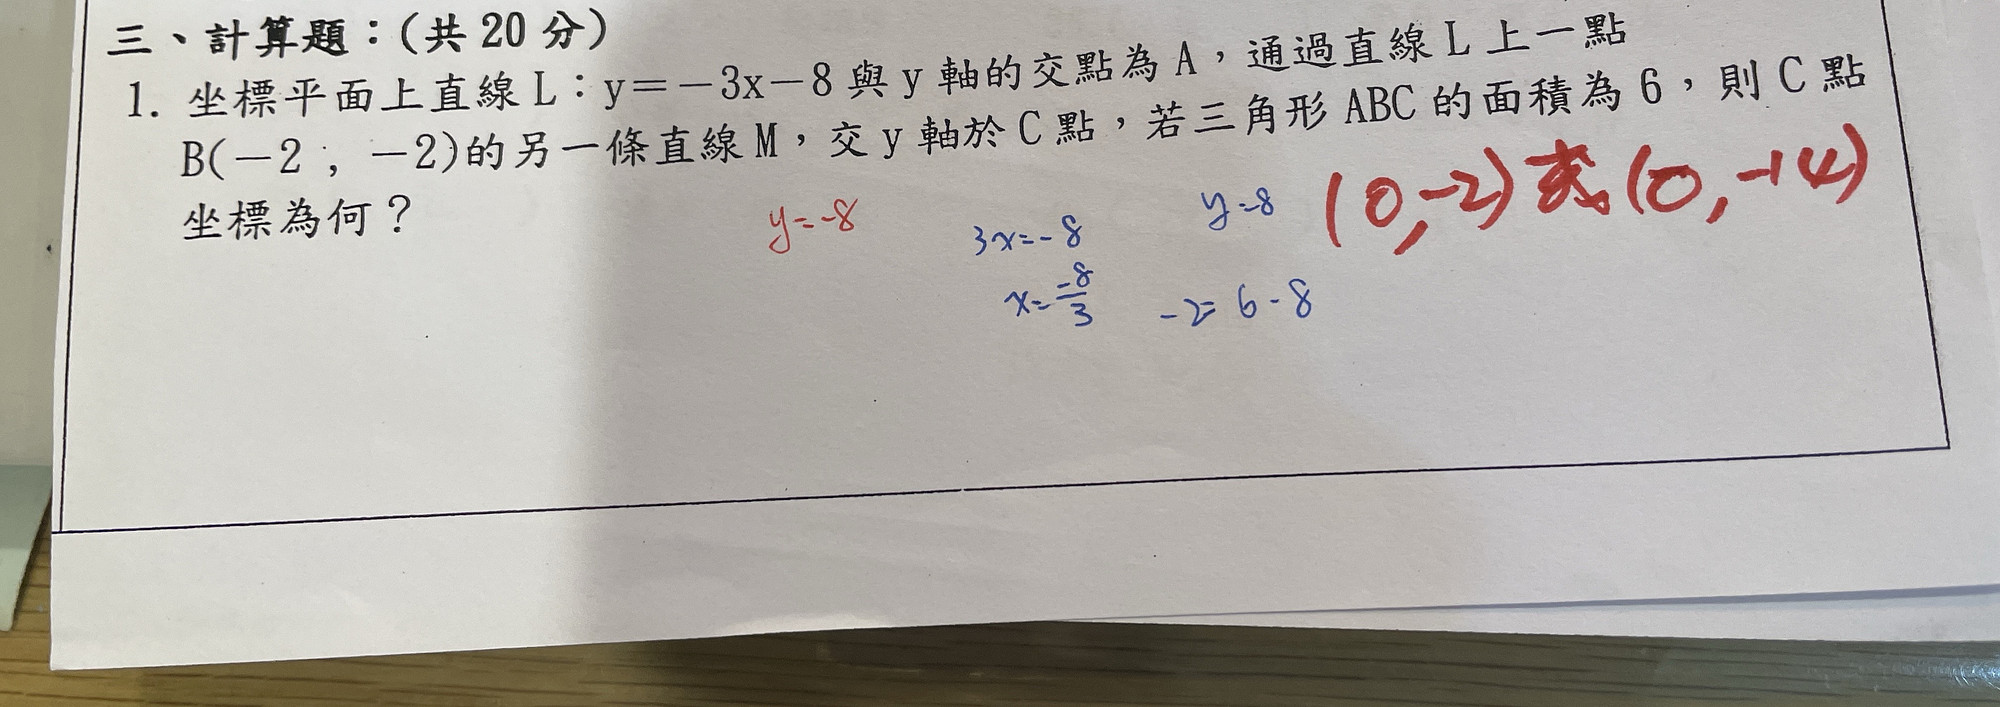 三、計算題：(共 20 分)
1. 坐標平面上直線 L：y＝－3x－8 與 y 軸的交點為 A，通過直線 L 上一點
B(－2 , －2)的另一條直線 M，交 y 軸於 C 點，若三角形 ABC 的面積為 6，則 C 點
坐標為何？
y=-8
3x=-8
x=-8/3
y=-8
-2=6-8
(0,-2)或(0,-14)